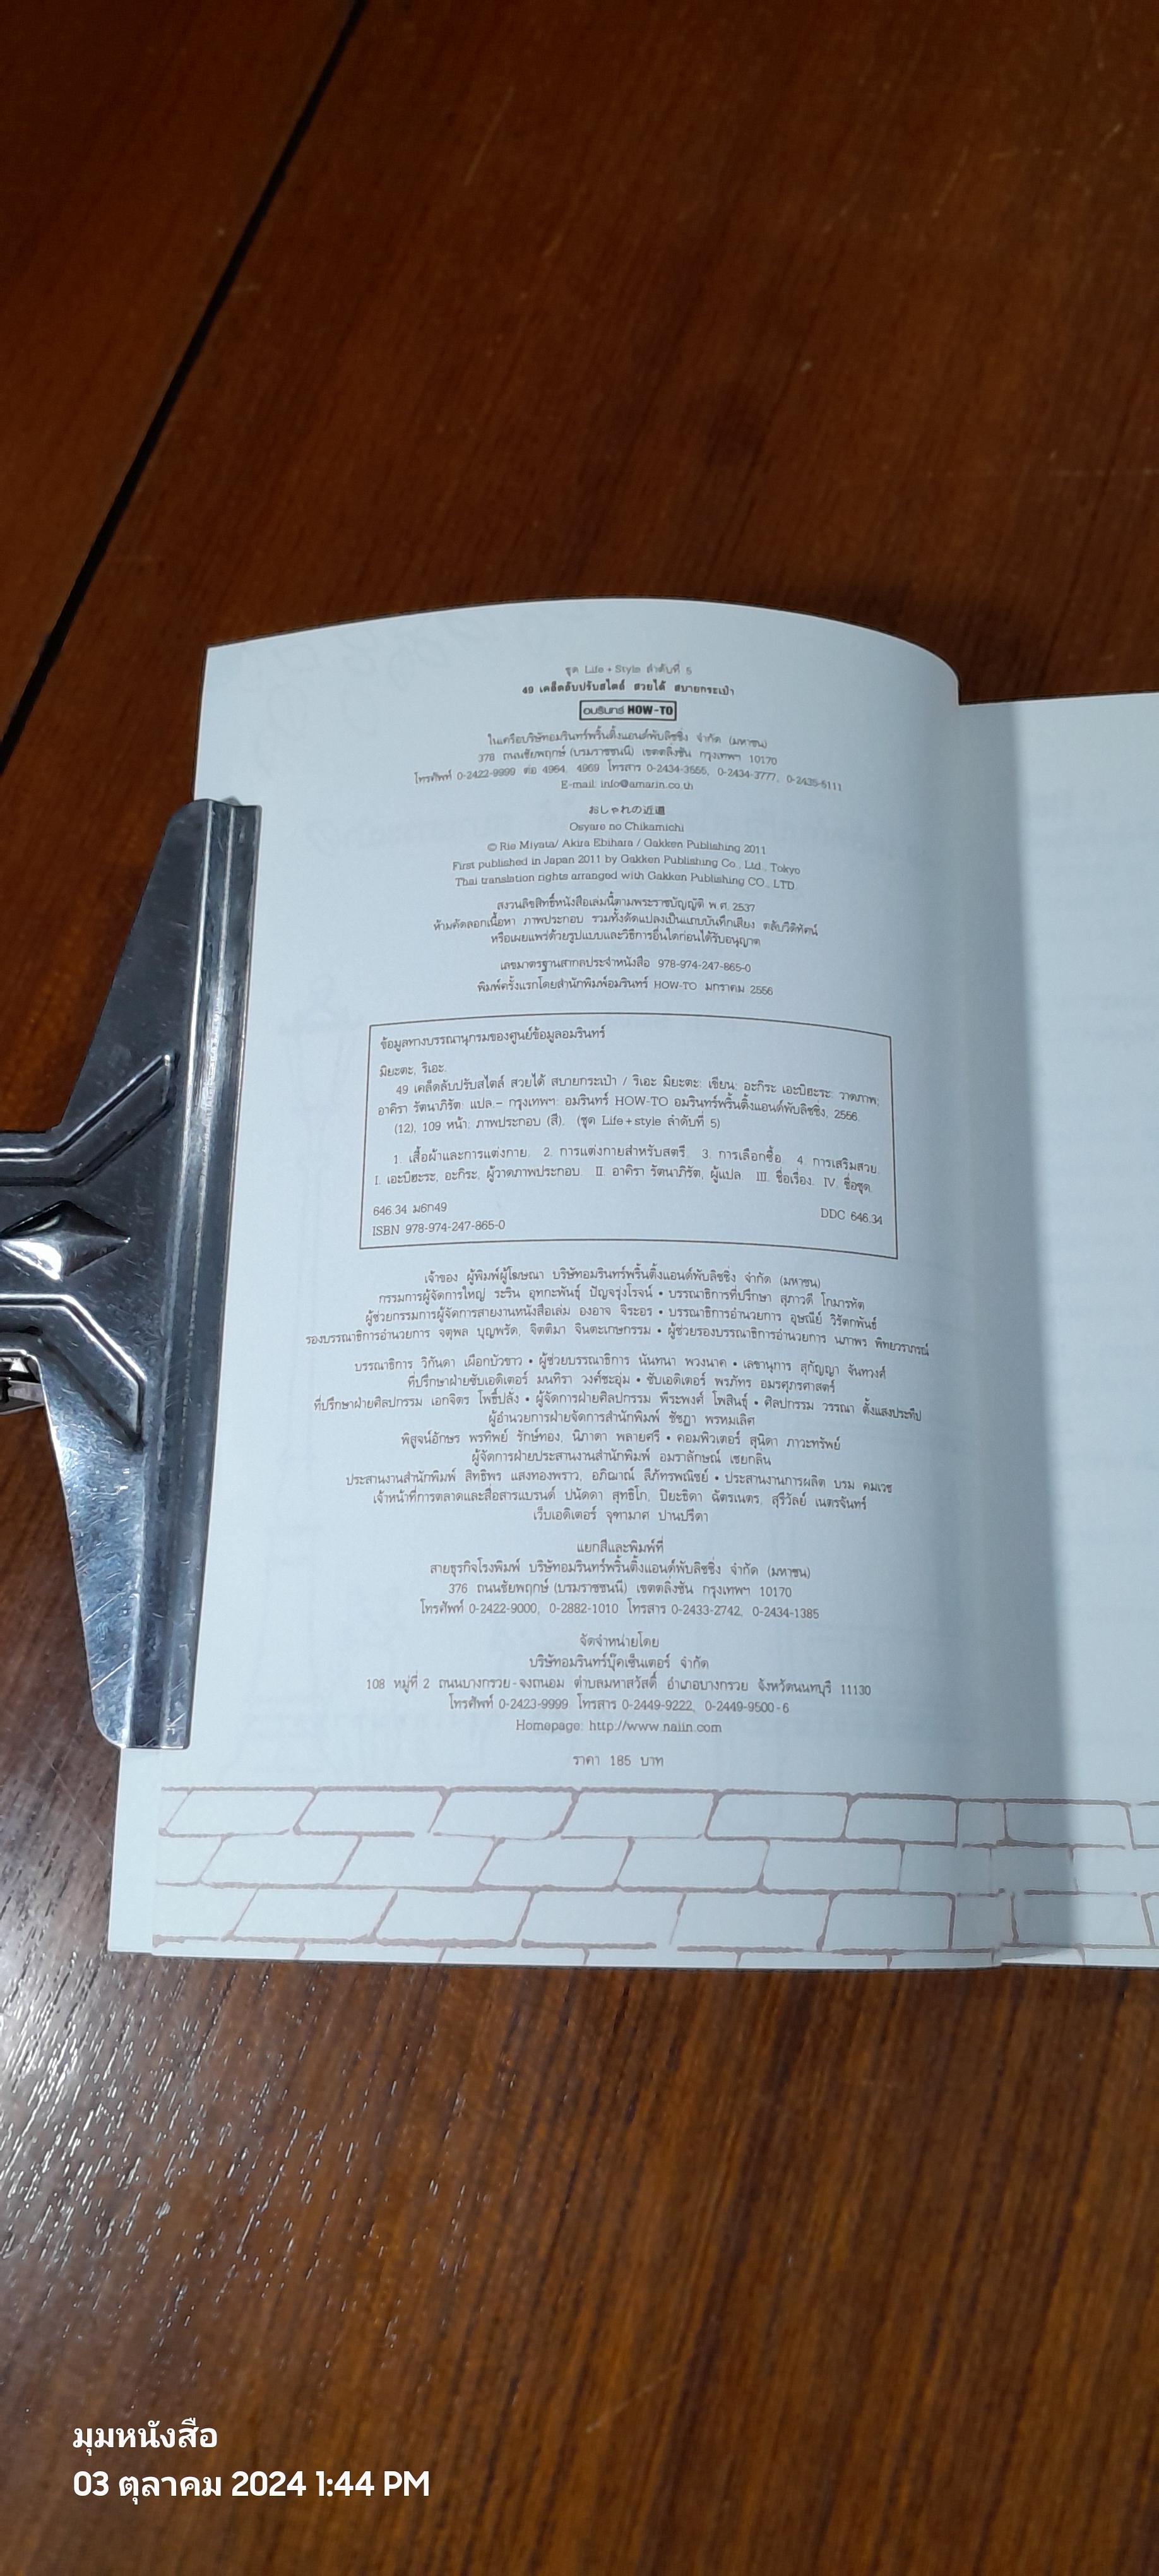 ชุด Life + Style ลำดับที่ 5
49 เคล็ดลับปรับสไตล์ สวยได้ สบายกระเป๋า
อมรินทร์ HOW-TO
ในเครือบริษัทอมรินทร์พริ้นติ้งแอนด์พับลิชชิ่ง จำกัด (มหาชน)
378 ถนนชัยพฤกษ์ (บรมราชชนนี) เขตตลิ่งชัน กรุงเทพฯ 10170
โทรศัพท์ 0-2422-9999 ต่อ 4964, 4969 โทรสาร 0-2434-3555, 0-2434-3777, 0-2435-5111
E-mail: info@amarin.co.th
おしゃれの近道
Osyare no Chikamichi
© Rie Miyata/ Akira Ebihara / Gakken Publishing 2011
First published in Japan 2011 by Gakken Publishing Co., Ltd., Tokyo
Thai translation rights arranged with Gakken Publishing CO., LTD.
สงวนลิขสิทธิ์หนังสือเล่มนี้ตามพระราชบัญญัติ พ.ศ. 2537
ห้ามคัดลอกเนื้อหา ภาพประกอบ รวมทั้งดัดแปลงเป็นแถบบันทึกเสียง ตลับวีดิทัศน์
หรือเผยแพร่ด้วยรูปแบบและวิธีการอื่นใดก่อนได้รับอนุญาต
เลขมาตรฐานสากลประจำหนังสือ 978-974-247-865-0
พิมพ์ครั้งแรกโดยสำนักพิมพ์อมรินทร์ HOW-TO มกราคม 2556
ข้อมูลทางบรรณานุกรมของศูนย์ข้อมูลอมรินทร์
มิยะตะ, ริเอะ.
49 เคล็ดลับปรับสไตล์ สวยได้ สบายกระเป๋า / ริเอะ มิยะตะ: เขียน; อะกิระ เอะบิฮะระ: วาดภาพ;
อาคิรา รัตนาภิรัต: แปล.– กรุงเทพฯ: อมรินทร์ HOW-TO อมรินทร์พริ้นติ้งแอนด์พับลิชชิ่ง, 2556.
(12), 109 หน้า: ภาพประกอบ (สี). (ชุด Life+style ลำดับที่ 5)
1. เสื้อผ้าและการแต่งกาย. 2. การแต่งกายสำหรับสตรี. 3. การเลือกซื้อ. 4. การเสริมสวย.
I. เอะบิฮะระ, อะกิระ, ผู้วาดภาพประกอบ. II. อาคิรา รัตนาภิรัต, ผู้แปล. III. ชื่อเรื่อง. IV. ชื่อชุด.
646.34 ม6ก49 DDC 646.34
ISBN 978-974-247-865-0
เจ้าของ ผู้พิมพ์ผู้โฆษณา บริษัทอมรินทร์พริ้นติ้งแอนด์พับลิชชิ่ง จำกัด (มหาชน)
กรรมการผู้จัดการใหญ่ ระริน อุทกะพันธุ์ ปัญจรุ่งโรจน์ • บรรณาธิการที่ปรึกษา สุภาวดี โกมารทัต
ผู้ช่วยกรรมการผู้จัดการสายงานหนังสือเล่ม องอาจ จิระอร • บรรณาธิการอำนวยการ อุษณีย์ วิรัตกพันธ์
รองบรรณาธิการอำนวยการ จตุพล บุญพรัด, จิตติมา จินตะเกษกรรม • ผู้ช่วยรองบรรณาธิการอำนวยการ นภาพร พิทยวราภรณ์
บรรณาธิการ วิกันดา เผือกบัวขาว • ผู้ช่วยบรรณาธิการ นันทนา พวงนาค • เลขานุการ สุกัญญา จันทวงศ์
ที่ปรึกษาฝ่ายซับเอดิเตอร์ มนทิรา วงศ์ชะอุ่ม • ซับเอดิเตอร์ พรภัทร อมรศุภรศาสตร์
ที่ปรึกษาฝ่ายศิลปกรรม เอกจิตร โพธิ์ปลั่ง • ผู้จัดการฝ่ายศิลปกรรม พีระพงศ์ โพสินธุ์ • ศิลปกรรม วรรณา ตั้งแสงประทีป
ผู้อำนวยการฝ่ายจัดการสำนักพิมพ์ ชัชฎา พรหมเลิศ
พิสูจน์อักษร พรทิพย์ รักษ์ทอง, นิภาดา พลายศรี • คอมพิวเตอร์ สุนิดา ภาวะทรัพย์
ผู้จัดการฝ่ายประสานงานสำนักพิมพ์ อมราลักษณ์ เชยกลิ่น
ประสานงานสำนักพิมพ์ สิทธิพร แสงทองพราว, อภิฌาณ์ ลีภัทรพณิชย์ • ประสานงานการผลิต บรม คมเวช
เจ้าหน้าที่การตลาดและสื่อสารแบรนด์ ปนัดดา สุทธิโก, ปิยะธิดา ฉัตรเนตร, สุรีวัลย์ เนตรจันทร์
เว็บเอดิเตอร์ จุฑามาศ ปานปรีดา
แยกสีและพิมพ์ที่
สายธุรกิจโรงพิมพ์ บริษัทอมรินทร์พริ้นติ้งแอนด์พับลิชชิ่ง จำกัด (มหาชน)
376 ถนนชัยพฤกษ์ (บรมราชชนนี) เขตตลิ่งชัน กรุงเทพฯ 10170
โทรศัพท์ 0-2422-9000, 0-2882-1010 โทรสาร 0-2433-2742, 0-2434-1385
จัดจำหน่ายโดย
บริษัทอมรินทร์บุ๊คเซ็นเตอร์ จำกัด
108 หมู่ที่ 2 ถนนบางกรวย-จงถนอม ตำบลมหาสวัสดิ์ อำเภอบางกรวย จังหวัดนนทบุรี 11130
โทรศัพท์ 0-2423-9999 โทรสาร 0-2449-9222, 0-2449-9500-6
Homepage: http://www.naiin.com
ราคา 185 บาท
มุมหนังสือ
03 ตุลาคม 2024 1:44 PM